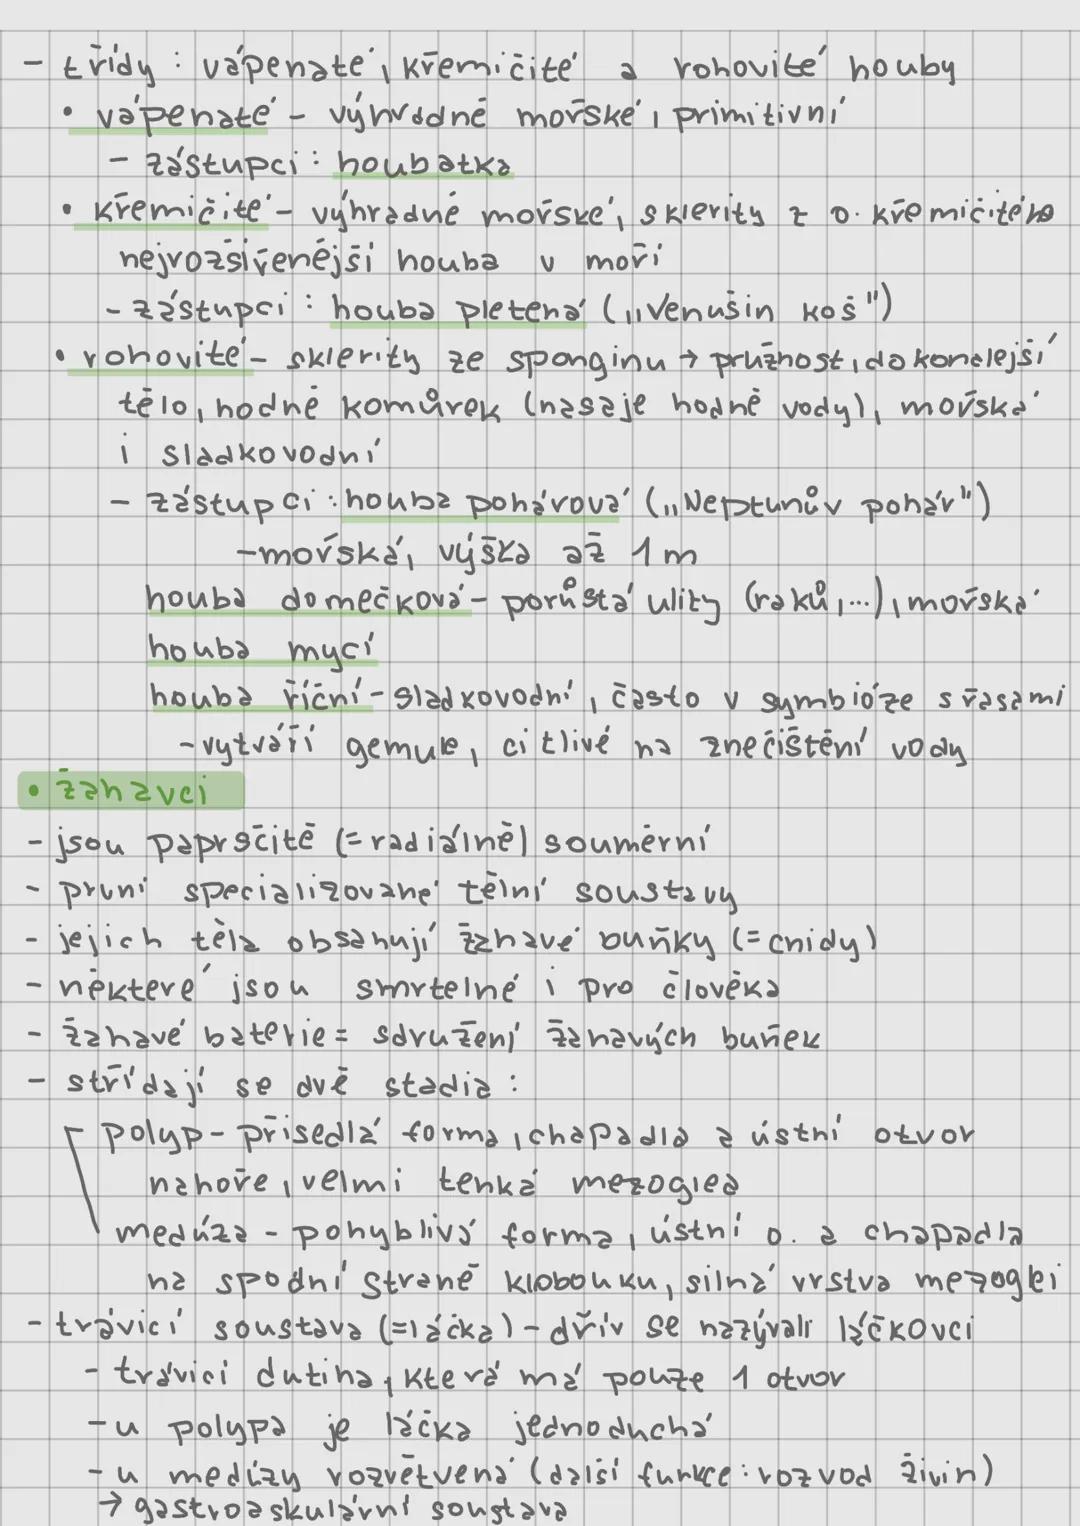 - třídy : vápenaté, křemičité a rohovité houby
• vápenaté - výhradně mořské, primitivní
- zástupci : houbatka
• křemičité - výhradně mořské, sklerity z o. křemičitého
nejrozšířenější houba v moři
- zástupci : houba pletená („Venušin koš")
• rohovité - sklerity ze sponginu → pružnost, dokonalejší
tělo, hodně komůrek (nasaje hodně vody), mořská
i sladkovodní
- zástupci : houba pohárová („Neptunův pohár")
- mořská, výška až 1 m
houba domečková - porůstá ulity (raků,...), mořská
houba mycí
houba říční - sladkovodní, často v symbióze s řasami
- vytváří gemule, citlivé na znečištění vody
• žahavci
- jsou paprsčitě (= radiálně) souměrní
- první specializované tělní soustavy
- jejich těla obsahují žahavé buňky (= cnidy)
- některé jsou smrtelné i pro člověka
- žahavé baterie = sdružení žahavých buněk
- střídají se dvě stadia :
polyp - přisedlá forma, chapadla a ústní otvor
nahoře, velmi tenká mezoglea
medúza - pohyblivá forma, ústní o. a chapadla
na spodní straně klobouku, silná vrstva mezoglei
- trávicí soustava (= láčka) - dřív se nazývali láčkovci
- trávicí dutina, která má pouze 1 otvor
- u polypa je láčka jednoduchá
- u medúzy rozvětvená (další funkce : rozvod živin)
→ gastroaskulární soustava